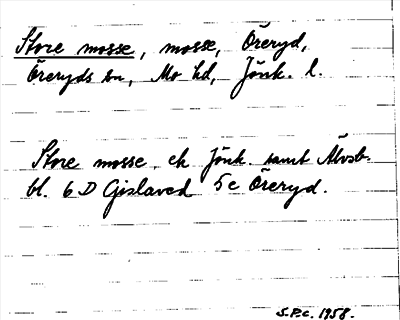 Store mosse, mosse, Öreryd,
Öreryds sn, Mo hd, Jönk. l.
Store mosse ek Jönk. samt Älvsb.
bl. 6 D Gislaved 5 c Öreryd.
S.P.C. 1958.